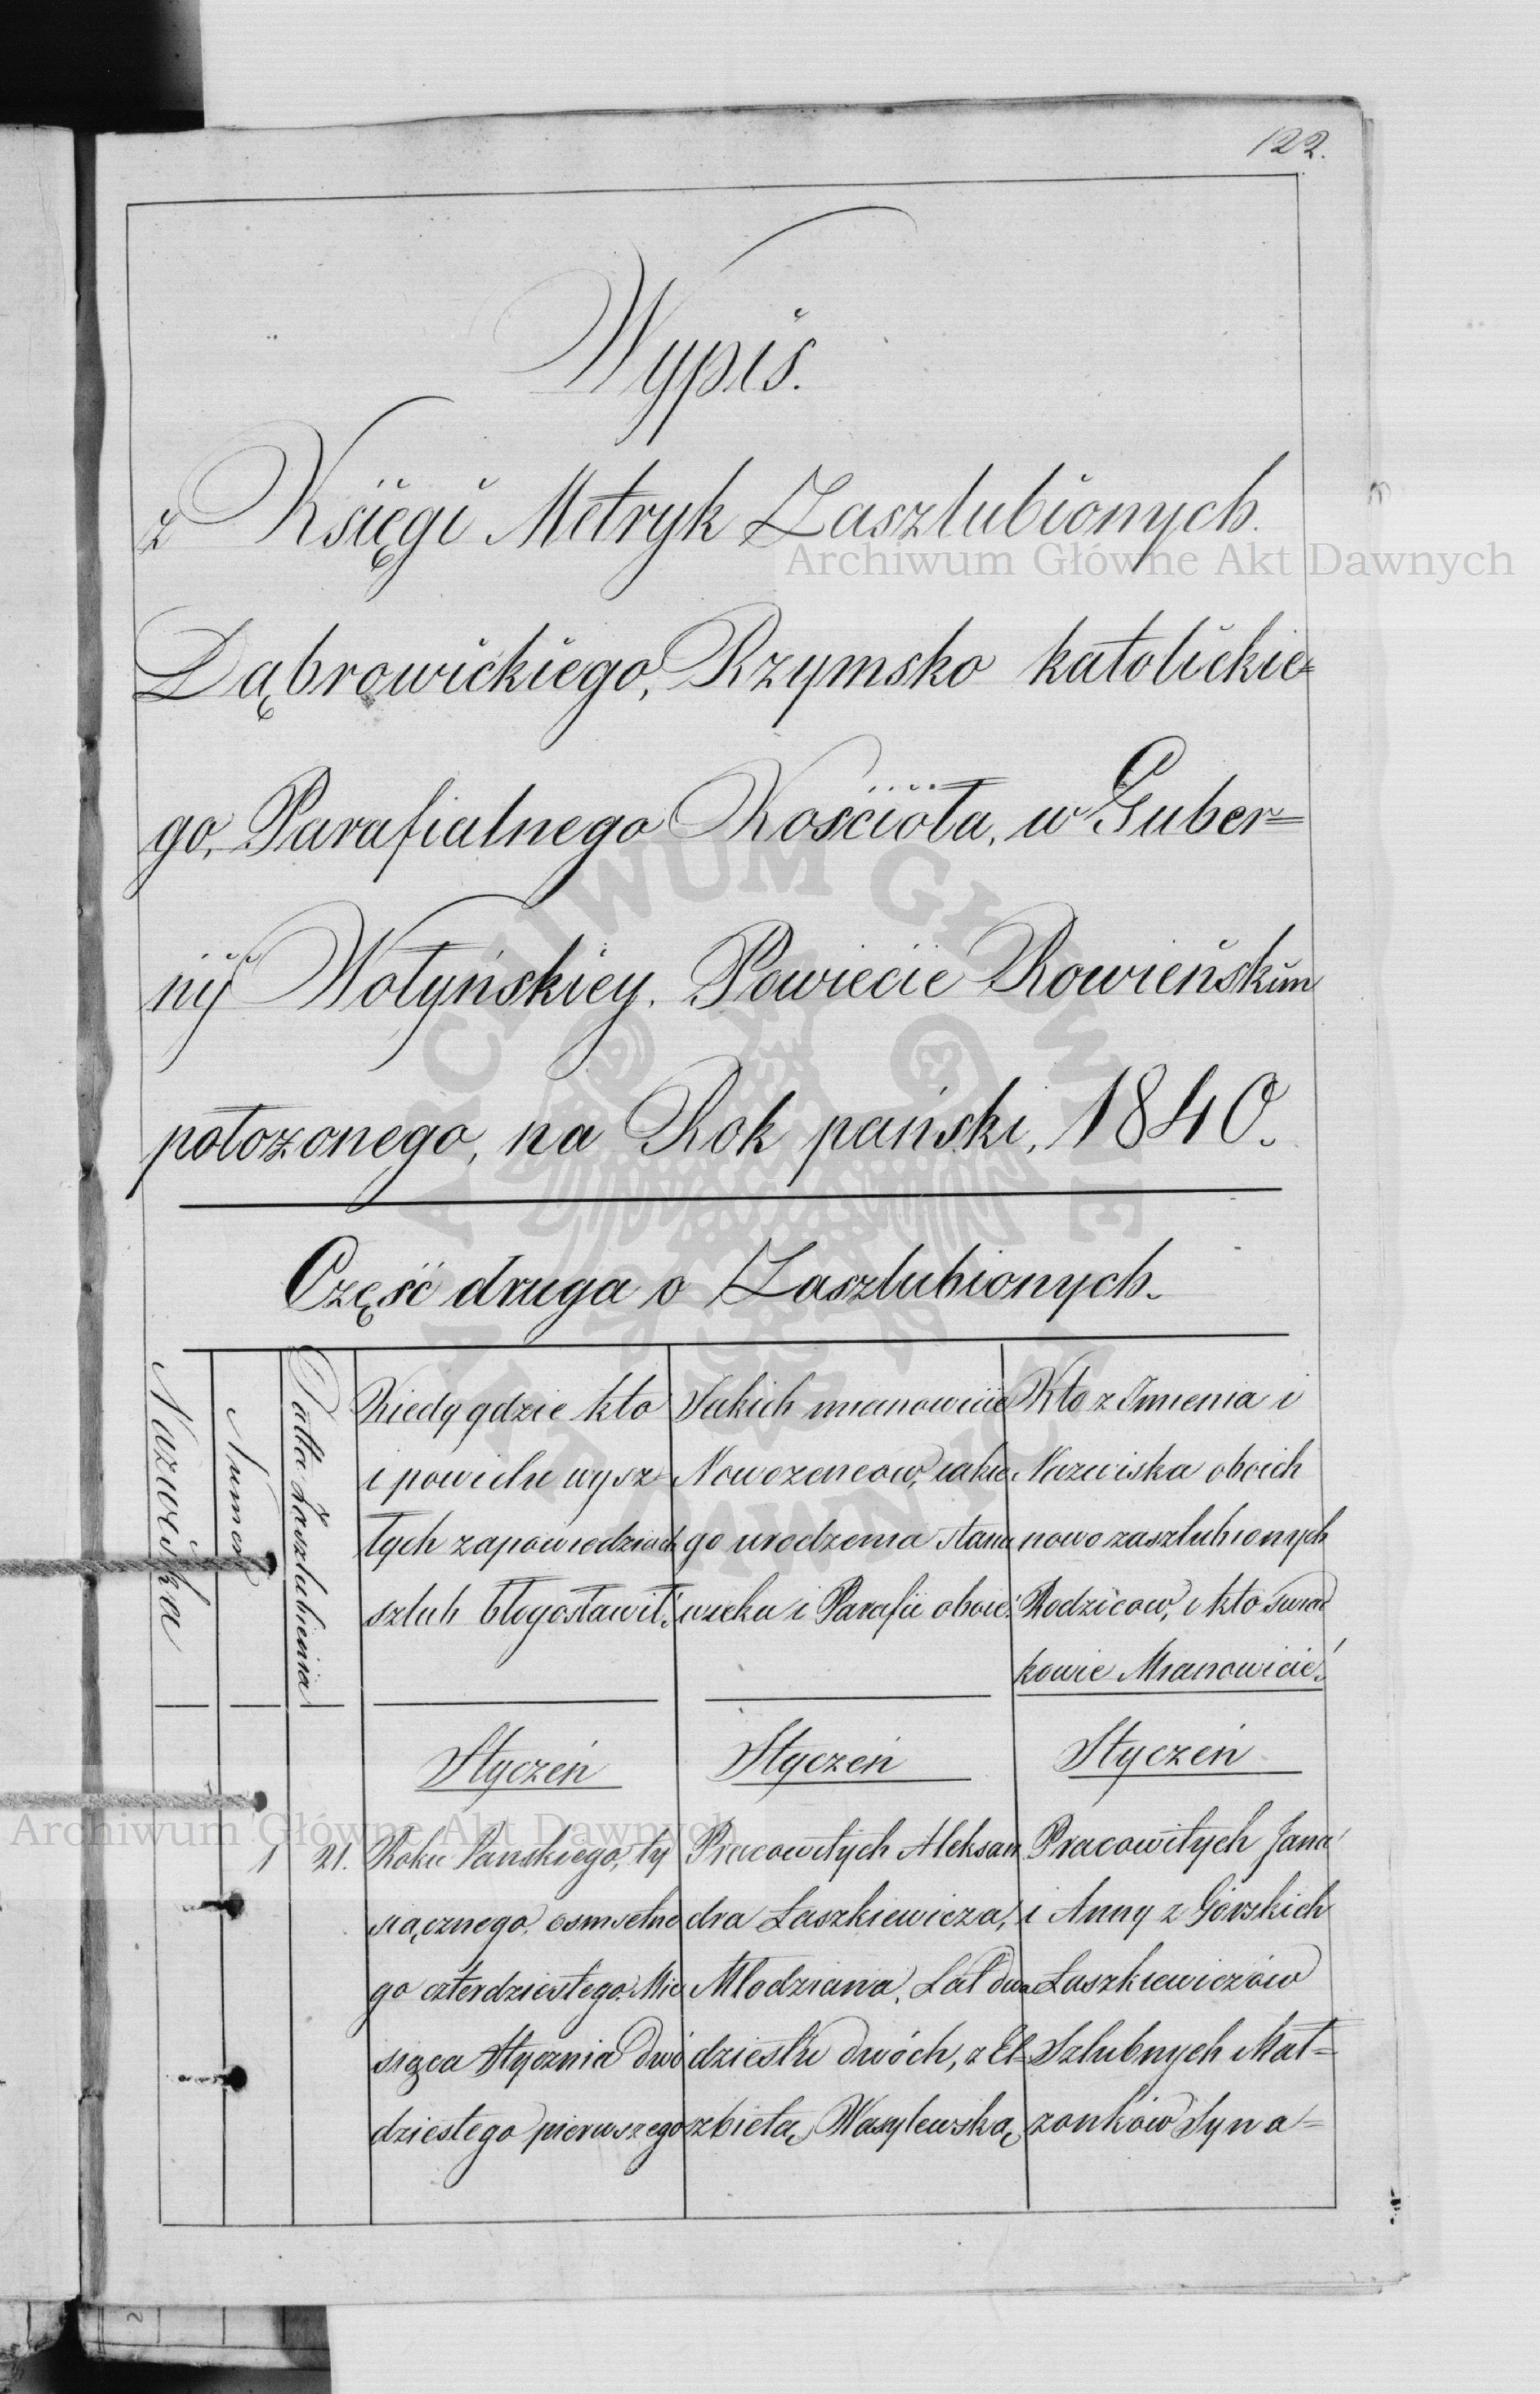 122.
Wypis.
z Księgi Metryk Zaszlubionych.
Dąbrowickiego, Rzymsko katolickie=
go, Parafialnego Kościoła, w Guber=
nij Wołyńskiey. Powiecie Rowieńskim
położonego, na Rok pański, 1840.
Część druga o Zaszlubionych.
Nazwiska
Numer
Datta Zaszlubienia
Kiedy gdzie kto
i powielu wysz=
łych zapowiedziach
szlub błogosławił.
Jakich mianowicie
Nowozencow, iakie
go urodzenia stanu
wieku i Parafii oboie:
Kto z Imienia i
Nazwiska oboich
nowo zaszlubionych
Rodziców, i kto swiad
kowie Mianowicie.
Styczeń
Styczeń
Styczeń
1
21.
Roku Panskiego, ty
siącznego, osmsetne
go czterdziestego. Mie
siąca Stycznia dwó
dziestego pierwszego
Pracowitych Aleksan
dra Łaszkiewicza,
Młodziana, Lat dwa
dziestu dwóch, z El=
zbietą, Wasylewską,
Pracowitych Jana
i Anny z Górskich
Łaszkiewiczów
Szlubnych Mał=
zonków Syna=
Archiwum Główne Akt Dawnych
ARCHIWUM GŁÓWNE
AKT DAWNYCH
Archiwum Główne Akt Dawnych